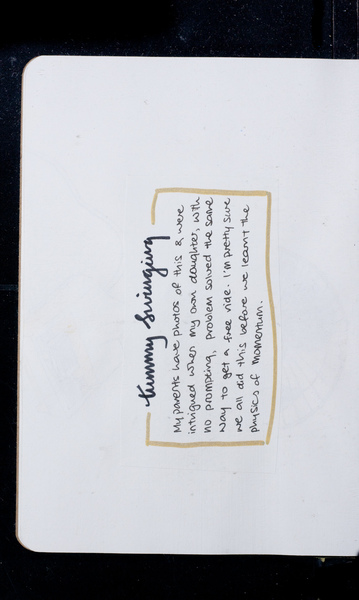 tummy swinging
My parents have photos of this & were
intrigued when my own daughter, with
no prompting, problem solved the same
way to get a free ride. I'm pretty sure
we all did this before we learnt the
physics of momentum.